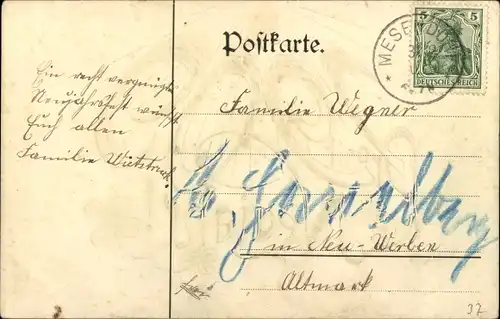 Postkarte.
5 5
DEUTSCHES REICH
* MESE
Ein recht vergnügtes
Neujahrsfest wünscht
Euch allen
Familie
Familie Wegner
in Neu-Werben
Altmark
37